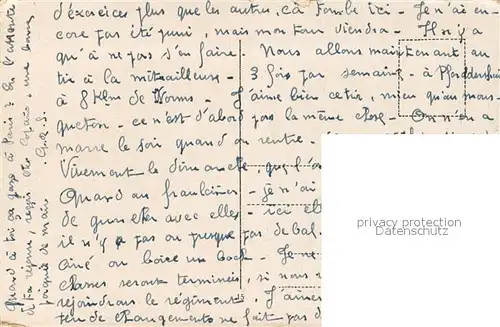 d'exercices plus que les autres, ça tombe ici - Je n'ai en-
core pas été puni, mais mon tour viendra - Il n'y a
qu'à ne pas s'en faire Nous allons maintenant au
tir à la mitrailleuse - 3 fois par semaine - à
à 8 Klm de Worms - J'aime bien ce tir, mieux qu'au mous-
queton - ce n'est d'abord pas la même chose - On n'en a
marre le soir quand on rentre.
Vivement le dimanche, que l'
Quand au - je n'ai
de avec elles - ici el
il n'y a pas ou presque pas de bal.
Ciné ou boire un bock - Je ne
classes seront terminées, si nous
rejoindrons le régiment. J'aime
peu de changements ne fait pas d
Quand à tes à Paris? En l'attente
de ta réponse, reçois cher une bonne
poignée de main
privacy protection